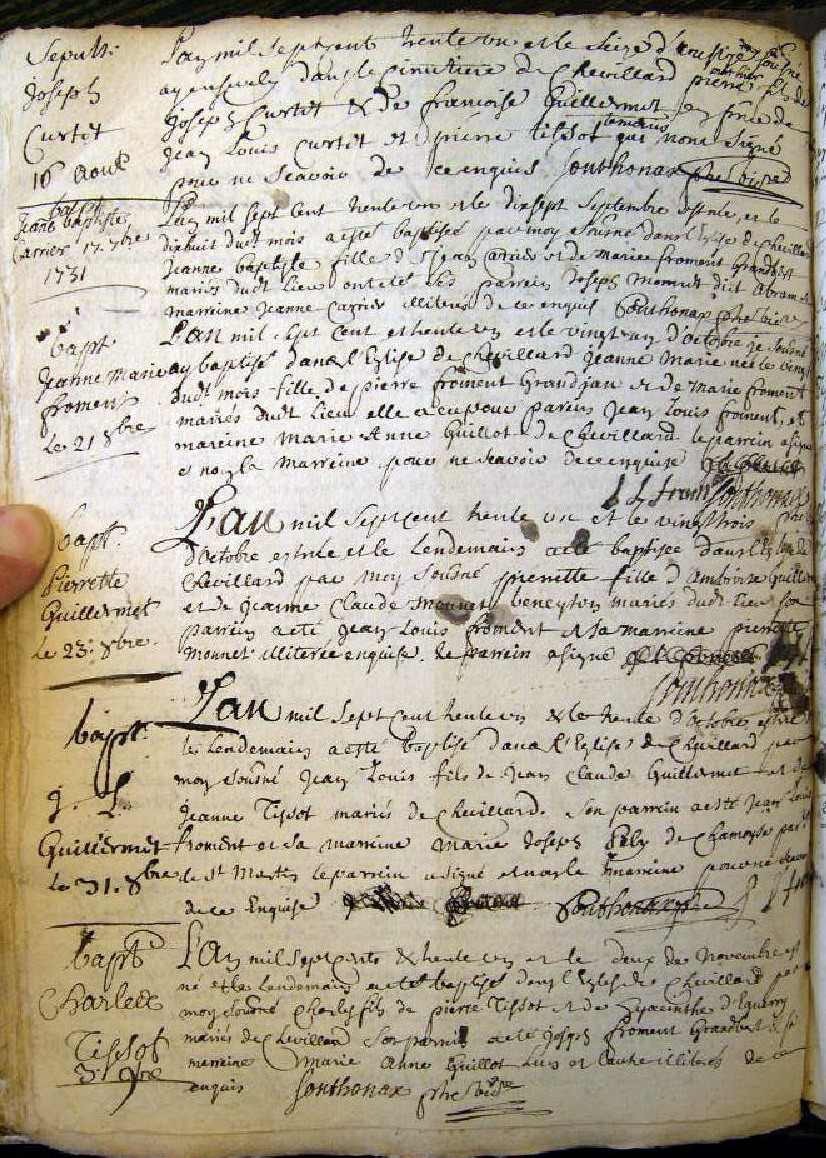 Sepult.
Joseph
Curtet
16 Aout
L'an mil sept cent trente un et le seize d'Aoust je soussigné
ay ensevely dans le cimetière de Chevillard pierre fils de
Joseph Curtet & de françoise Guillermet en pnce de
Jean Louis Curtet et pierre tissot temoins qui n'ont signé
pour ne scavoir de ce enquis Sonthonax ptre vicre
bapt
Jeane baptiste
Carrier 17. 7bre
1731
L'an mil sept cent trente un et le dixsept septembre est née, et le
dixhuit dudt mois a esté baptisée par moy sousné dans l'Eglise de Chevillard
Jeanne baptiste fille de Jean Carrier et de Marie froment Grandbert
mariés dudt lieu ont eté ses parrein Joseph monnet dict Abram et
marreine jeanne Carrier illiterés de ce enquis Sonthonax ptre vicre
bapt
Jeanne Marie
froment
Le 21 8bre
L'an mil sept cent et trente un et le vingt un d'Octobre je sousné
ay baptisé dans l'Eglise de Chevillard jeanne Marie née le vingt
dudt mois fille de pierre froment Grandjan et de Marie froment
mariés dudt lieu elle a eu pour parein Jean Louis froment, et
mareine Marie Anne Guillot de Chevillard le parrein a signé
et non la marreine pour ne scavoir de ce enquise
J L froment Sonthonax ptre
bapt.
Pierrette
Guillermet
Le 23. 8bre.
L'an mil sept cent trente un et le vingt trois
d'Octobre est née et le lendemain a eté baptisee dans l'Eglise de
Chevillard par moy sousné pierrette fille d'Ambroise Guillermet
et de jeanne Claude monnet beneyton mariés dudt lieu son
parrein a eté jean Louis froment et sa marreine pierrette
monnet illiterée enquise. le parrein a signé
Sonthonax
bapt.
J. L.
Guillermet
Le 31. 8bre
L'an mil sept cent trente un & le trente d'Octobre est né
le Lendemain a esté baptisé dans l'Eglise de Chevillard par
moy sousné Jean Louis fils de Jean Claude Guillermet et de
jeanne Tissot mariés de Chevillard. son parrein a esté Jean Louis
froment et sa marreine Marie Joseph de Chamoise parsse
de st Martin le parrein a signé et non la marreine pour ne scavoir
de ce Enquise Sonthonax ptre J L froment
bapt
Charles
Tissot
3. 9bre
L'An mil sept cents & trente un et le deux de Novembre est
né et le lendemain a esté baptisé dans l'Eglise de Chevillard par
moy sousné Charles fils de pierre Tissot et de Hyacinthe d'Eguerry
mariés de Chevillard son parrein a eté joseph froment Grandbert & sa
marreine Marie Anne Guillot L'un et l'autre illiterés de ce
enquis Sonthonax ptre vicre